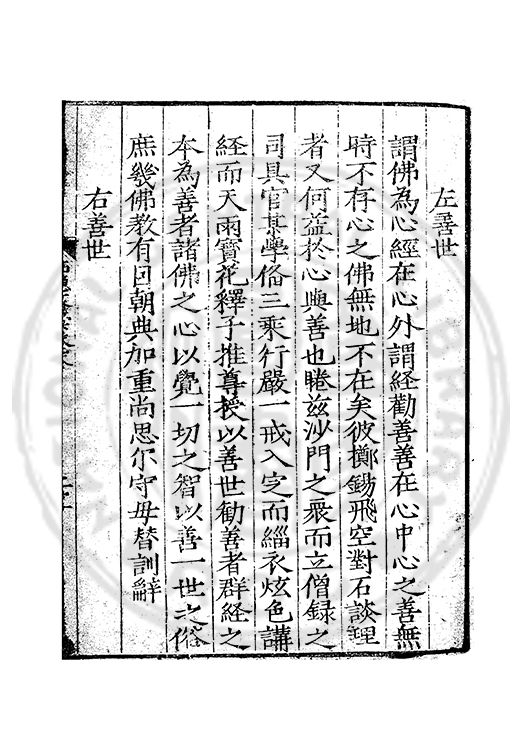 左善世
謂佛為心經在心外謂経勸善善在心中心之善無
時不存心之佛無地不在矣彼擲錫飛空對石談理
者又何益於心與善也睠兹沙門之衆而立僧録之
司具官某學俻三乘行嚴一戒入定而緇衣炫色講
経而天雨寳花釋子推尊授以善世勧善者群経之
本為善者諸佛之心以覺一切之智以善一世之俗
庶幾佛教有回朝典加重尚思尔守毋替訓辭
右善世